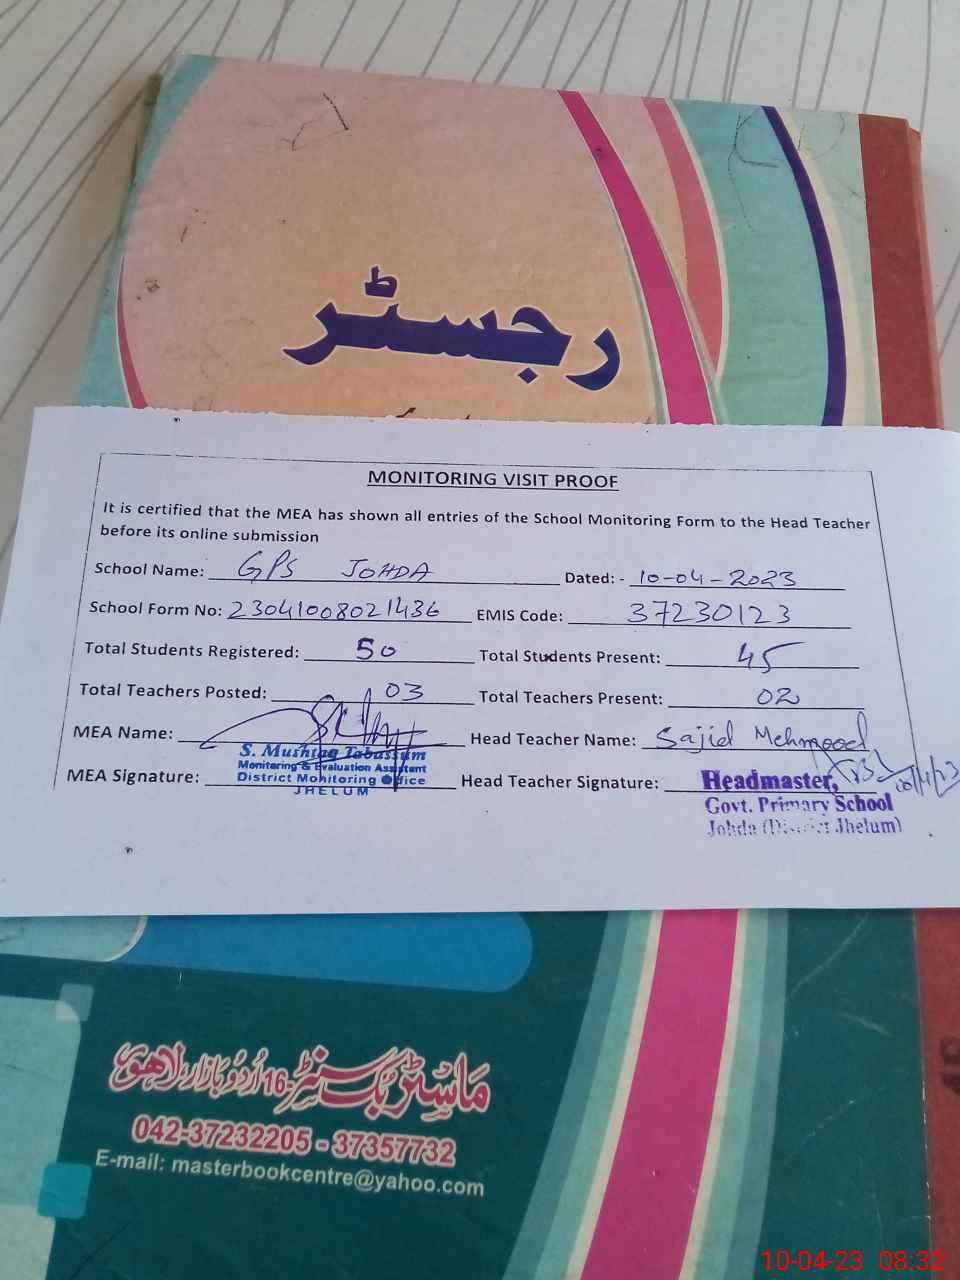 رجسٹر
MONITORING VISIT PROOF
It is certified that the MEA has shown all entries of the School Monitoring Form to the Head Teacher
before its online submission
School Name: GPS JOHDA Dated: - 10-04-2023
School Form No: 23041008021436 EMIS Code: 37230123
Total Students Registered: 50 Total Students Present: 45
Total Teachers Posted: 03 Total Teachers Present: 02
MEA Name: Head Teacher Name: Sajid Mehmood
S. Mushtaq Tabassum
Monitoring & Evaluation Assistant
MEA Signature: District Monitoring Office Head Teacher Signature: Headmaster,
JHELUM
Govt. Primary School
Johda (District Jhelum)
ماسٹر بک سنٹر-16 اُردو بازار، لاہور
042-37232205 - 37357732
E-mail: masterbookcentre@yahoo.com
10-04-23 08:32